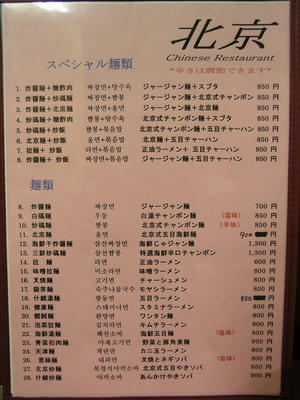 北京
Chinese Restaurant
*辛さは調節できます*
スペシャル麺類
1. 炸醤麺＋糖酢肉 짜장면+탕수육 ジャージャン麺＋スブタ 850 円
2. 炸醤麺＋炒碼麺 짜장면+짬뽕 ジャージャン麺＋北京式チャンポン 850 円
3. 炸醤麺＋北京麺 짜장면+울면 ジャージャン麺＋北京麺 850 円
4. 炒碼麺＋糖酢肉 짬뽕+탕수육 北京式チャンポン麺＋スブタ 850 円
5. 炒碼麺＋炒飯 짬뽕+볶음밥 北京式チャンポン麺＋五目チャーハン 850 円
6. 北京麺＋炒飯 울면+볶음밥 北京麺＋五目チャーハン 850 円
7. 拉麺＋炒飯 라면+볶음밥 正油ラーメン＋五目チャーハン 850 円
8. 炸醤麺＋炒飯 짜장면+볶음밥 ジャージャン麺＋五目チャーハン 850 円
麺類
8. 炸醤麺 짜장면 ジャージャン麺 700 円
9. 白碼麺 우동 白湯チャンポン麺 (塩味) 850 円
10. 炒碼麺 짬뽕 北京式チャンポン麺 (辛味) 850 円
11. 北京麺 울면 北京式五目海鮮麺 900 円
12. 海鮮干炸醤麺 삼선짜장면 海鮮じゃジャン麺 1,300 円
13. 三鮮炒碼麺 삼선짬뽕 特選海鮮辛口チャンポン 1,300 円
14. 拉麺 라면 正油ラーメン 600 円
15. 味噌拉麺 미소라면 味噌ラーメン 800 円
16. 叉焼麺 고기면 チャーシューメン 800 円
17. 銀芽麺 숙주나물국수 モヤシラーメン 800 円
18. 什錦湯麺 광동면 五目ラーメン 850 円
19. 健康麺 스테미너면 スタミナラーメン 800 円
20. 餛飩麺 완탕면 ワンタン麺 800 円
21. 泡菜拉麺 김치라면 キムチラーメン 800 円
22. 海鮮湯麺 해선소바 海鮮五目麺 (塩味) 850 円
23. 青菜和肉麺 야채고기면 野菜と豚肉煮麺 900 円
24. 天津麺 계란면 カニ玉ラーメン 800 円
26. 葱絲麺 대파면 叉焼とネギソバ (塩味) 800 円
27. 北京炒麺 북경식야끼소바 北京式五目やきソバ 850 円
28. 什錦炒麺 야끼소바 あんかけやきソバ 900 円